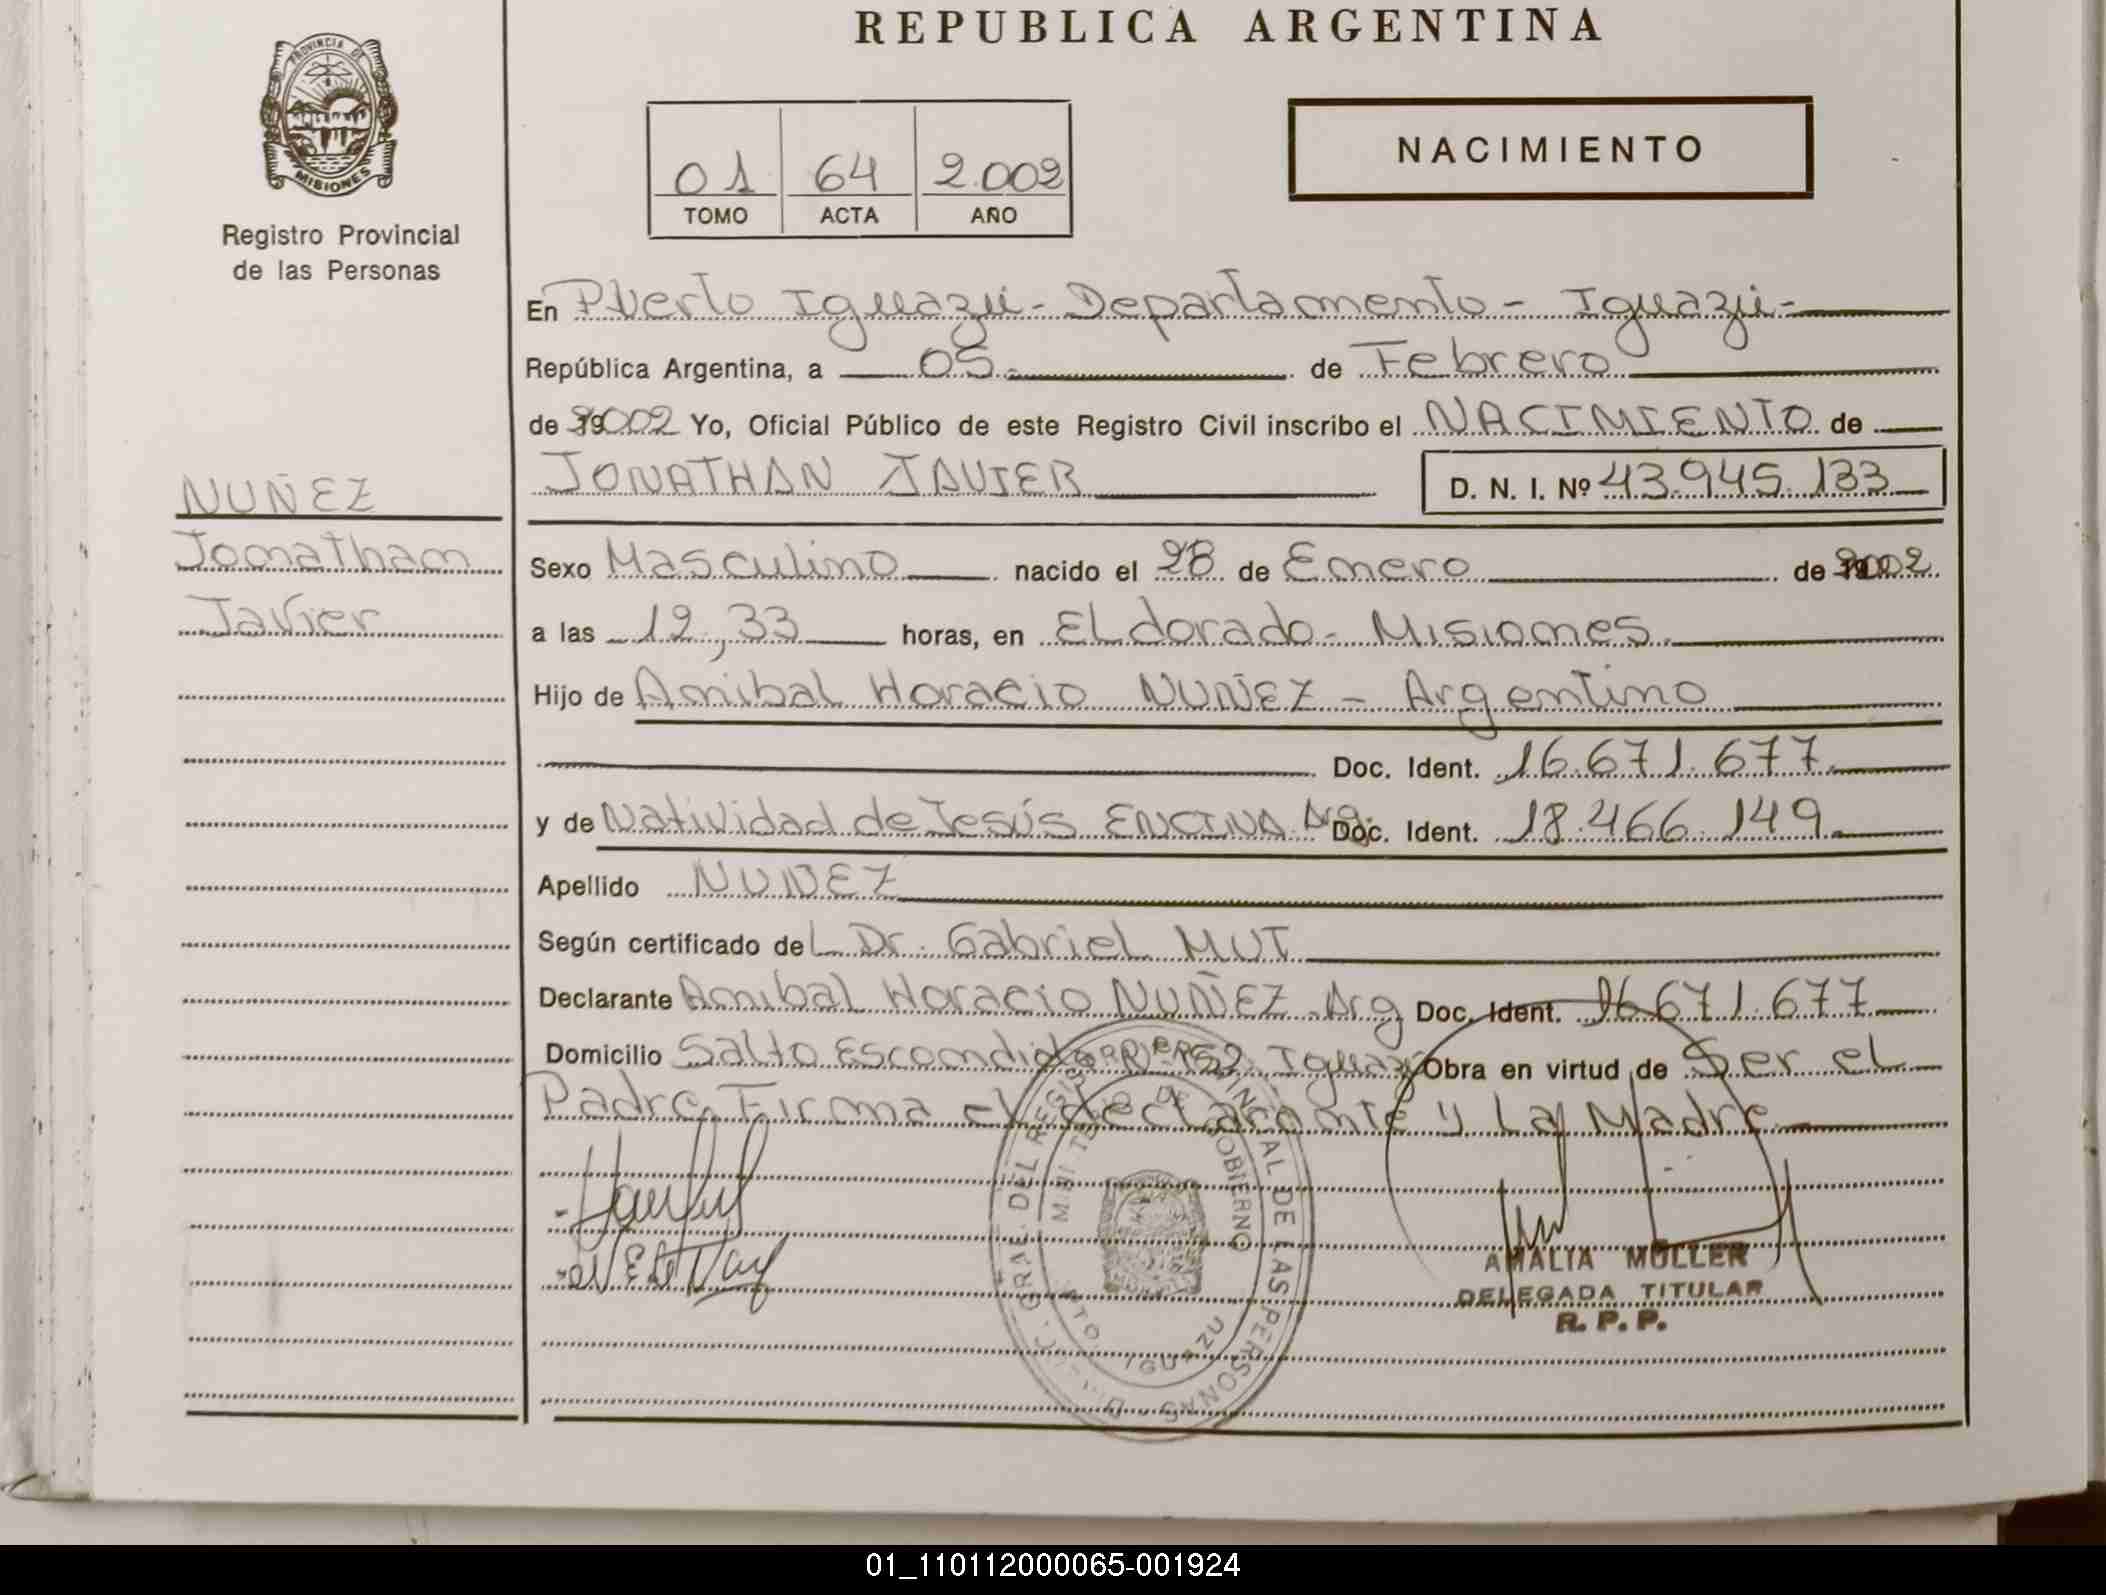 REPUBLICA ARGENTINA
PROVINCIA DE MISIONES
Registro Provincial
de las Personas
01 64 2.002
TOMO ACTA AÑO
NACIMIENTO
En Puerto Iguazú - Departamento - Iguazú -
República Argentina, a 05 de Febrero
de 2002 Yo, Oficial Público de este Registro Civil inscribo el NACIMIENTO de
JONATHAN JAVIER D. N. I. Nº 43.945.133
NUÑEZ
Jonathan
Javier
Sexo Masculino nacido el 28 de Enero de 2002
a las 12,33 horas, en ELdorado - Misiones.
Hijo de Anibal Horacio NUÑEZ - Argentino
Doc. Ident. 16.671.677
y de Natividad de Jesús ENCINA Arg Doc. Ident. 18.466.149
Apellido NUÑEZ
Según certificado del Dr. Gabriel MUT
Declarante Anibal Horacio NUÑEZ - Arg Doc. Ident. 16.671.677
Domicilio Salto Escondido Iguazú Obra en virtud de Ser el
Padre Firma el declarante y La Madre
DEL REGISTRO PROVINCIAL DE LAS PERSONAS
MINISTERIO DE GOBIERNO
PTO. IGUAZU
AMALIA MÜLLER
DELEGADA TITULAR
R. P. P.
01_110112000065-001924